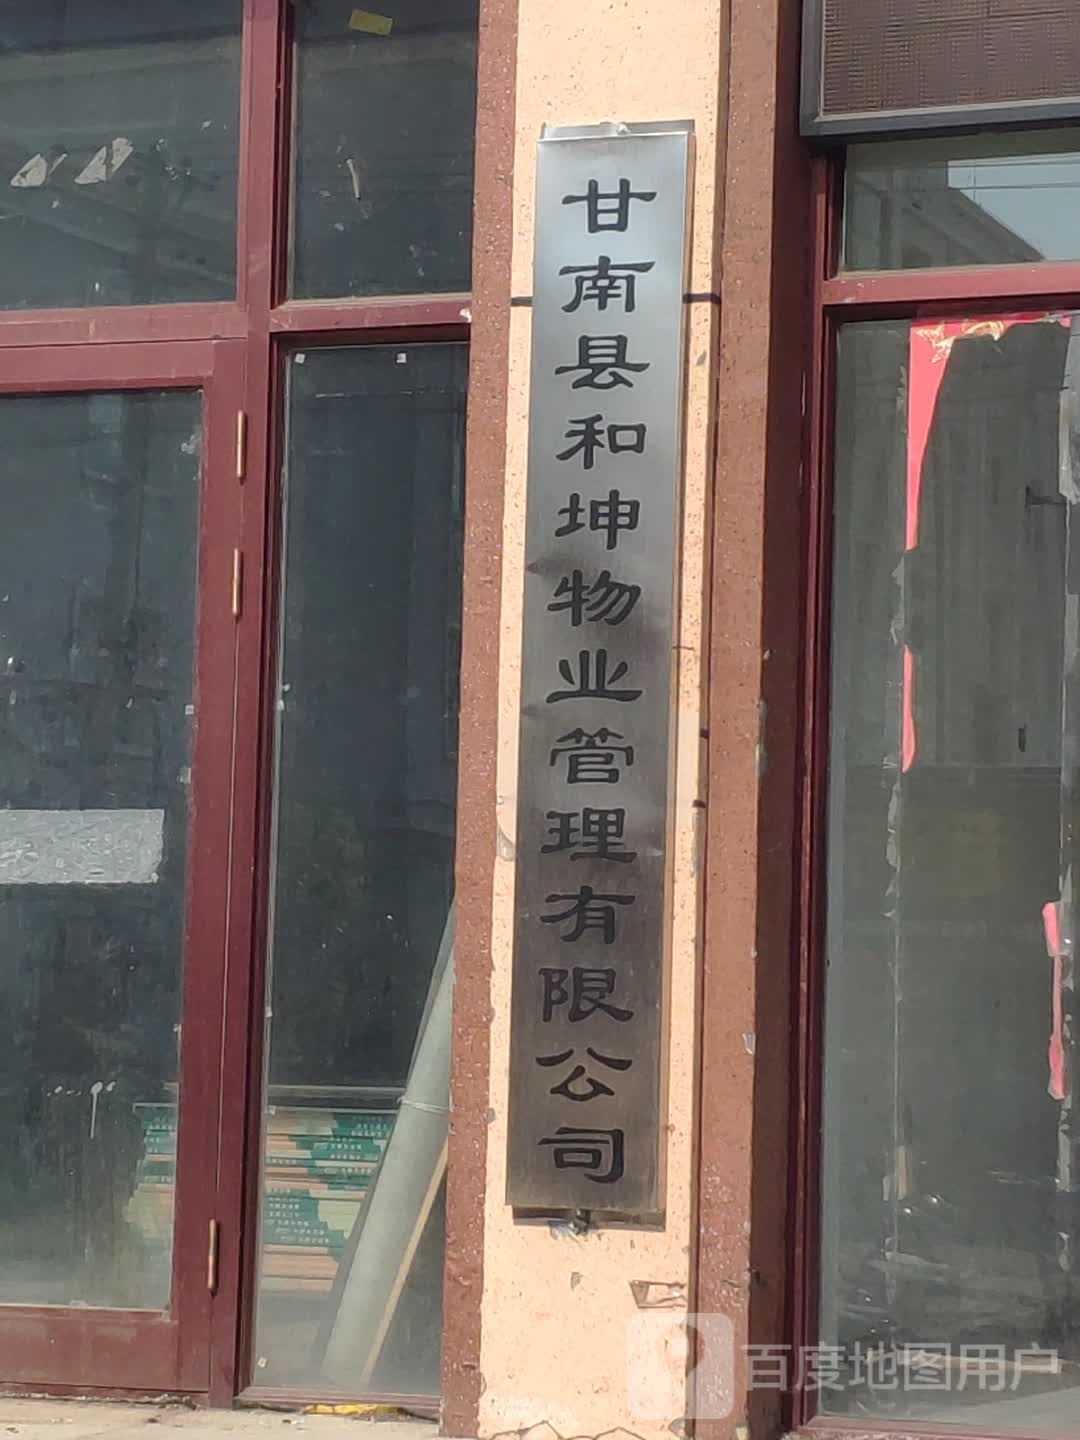 甘南县和坤物业管理有限公司
百度地图用户